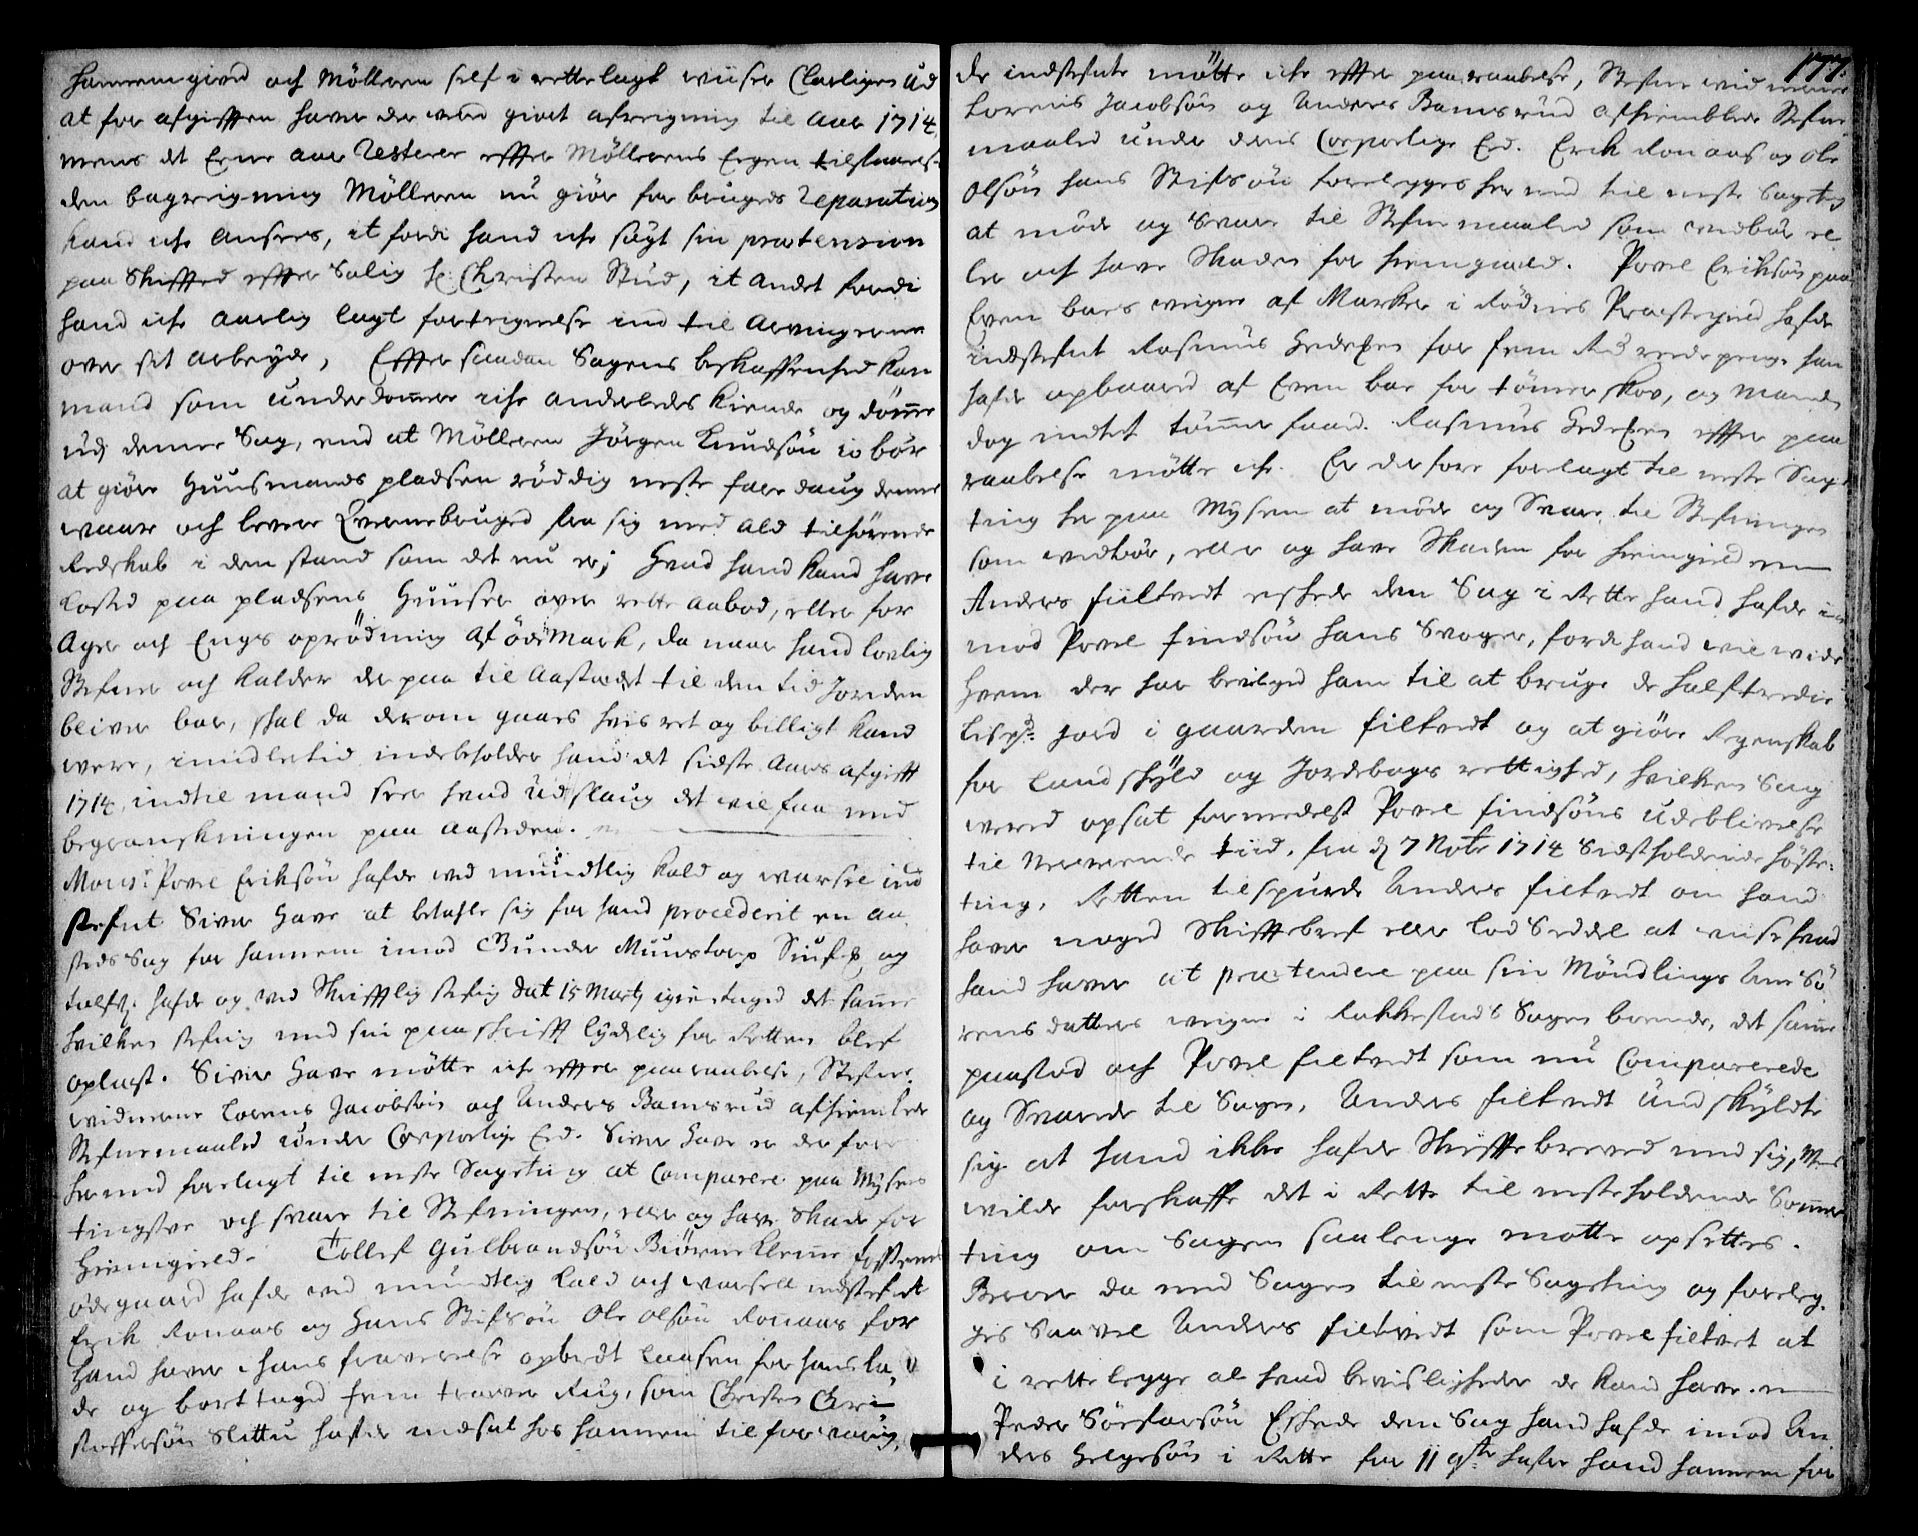 hannem gived och Mölleren self i rettelagt wiiser Clarligen ud
at for afgifften haver der vered giort afreigning til Aar 1714,
mens det Eene aar Resterer effter Möllerens Egen tilstaaelse
den bagreigning Mölleren nu giör for brugets Reparation
kand iche Ansees, it fordi hand iche sögt sin prætension
paa Skifftted effter Salig Hr: Christen Stud, it Andet fordi
hand iche aarlig lagt fortegnelse ind til Arvingerne
over sit arbeyde, Effter saadan Sagens beskaffenhed kan
mand som underdommer iche anderledes kiende og dömme
udj denne Sag, end at Mölleren Jörgen Knudsön io bör
at giöre Huusmands pladsen röddig neste faredaug denne
waar och levere Qvernebruged fra sig med ald tilhörende
Redskab i den stand som det nu er; Hvad hand kand have
kosted paa pladsens Huuser over rette aabod, eller for
Ager och Engs oprödning af öde Mark, da naar hand lovlig
Stefner och kalder der paa til Aasteedet til den tid Jorden
bliver bar, skal da derom gaaes hvis ret og billigt kand
were, imidlertid indebeholder hand det sidste Aars afgifft
1714, indtil mand seer hvad udslaug det vil faa ved
begranskningen paa aasteden.
Monsr: Povel Eriksön hafde ved mundtlig kald og warsel ind
stefnt Siver Have at betahle sig for hand procederit en aa
steds Sag for hannem imod Gunder Muustorp og
hafde og ved Skrifftlig stefnig dat 15 Martj igientaged det samme
hvilken stefnig med sin paaskrifft lydelig for Retten blef
oplæst. Siver Have mötte iche effter paaraabelse, Stefne-
widnerne Lorens Jacobsön och Anders Bamsrud afhiemlede
Stefnemaaled under Corporlige Eed. Siver Have er derfore
hermed forelagt til neste Sageting at Comparere paa Mysens
tingstue och svare til Stefningen, eller og have Skade for
Hiemgield. Tollef Gulbrandsön Biörneklemme
ödegaard hafde ved mundtlig kald och warsell indstefnt
Erik Ronaas og Hans Stifsön Ole Olsön Ronaas for
hand haver i hans fraverelse opbrödt laasen for hans la-
de og borttaged fem traver Rug, som Christen Chri-
stoffersön Slettu hafde indsat hos hannem til forvaring,
177.
de indstefnte mötte iche effter paaraabelse, Stefne widnerne
Lorens Jacobsön og Anders Bamsrud afhiemblede Stefne-
maaled under deris Corporlige Eed. Erik Ronaas og Ole
Olsön hans Stifsön forelegges hermed til neste Sageting
at möde og Svare til Stefnemaaled som wedbör el-
ler och have Skaden for hiemgield. Povel Eriksön paa
Even bærs weigne af Marker i Rödnes Præstegield hafde
indstefnt Rasmus Hedeßen for fem Rd rede penge han
hafde opbaared af Even bær for tömmerskov, og mand
dog indtet tömmer faaed. Rasmus Hedeßen effter paa
raabelse mötte iche. Er derfore forelagt til neste Sage-
ting her paa Mysen at möde og Svare til Stefningen
som wedbör, eller og have Skaden for hiemgield
Anders fiiltvedt eskede den Sag i Rette hand hafde i-
mod Povel findsön hans Svoger, fordi hand vil vide
hvem der har bevilged ham til at bruge de halftredie
Lispd: jord i gaarden filtvedt og at giöre Regenskab
for Landskyld og Jordebogs rettighed, hvilken Sag
wered opsat formedelst Povel findsöns udeblivelse
til nærværende tiid, fra d 7 Nobr 1714 Sidstholdende höste-
ting. Retten tilspurde Anders filtvedt om hand
haver noged Skifftebref eller Lod Seddel at vise hvad
hand haver at prætendere paa sin Möndlings Ane Sö-
rens datters weigne i Rakkestads Sogen boende, det samme
paastod och Povel filtvedt som nu Comparerede
og Svarede til Sagen, Anders filtvedt undskyldte
sig at hand ikke hafde Skiffte breved med sig, Men
wilde forskaffe det i Rette til nesteholdende Sommer
ting om Sagen saalenge motte opsettes.
Beroer da med Sagen til neste Sageting og foreleg-
ges Saavel Anders filtvedt som Povel filtvet at
i rettelegge al hvad bevisligheder de kand have.
Peder Sörfarsön Eskede den Sag hand hafde imod An-
ders Helgesön i Rette for 11 hafde hand hannem for